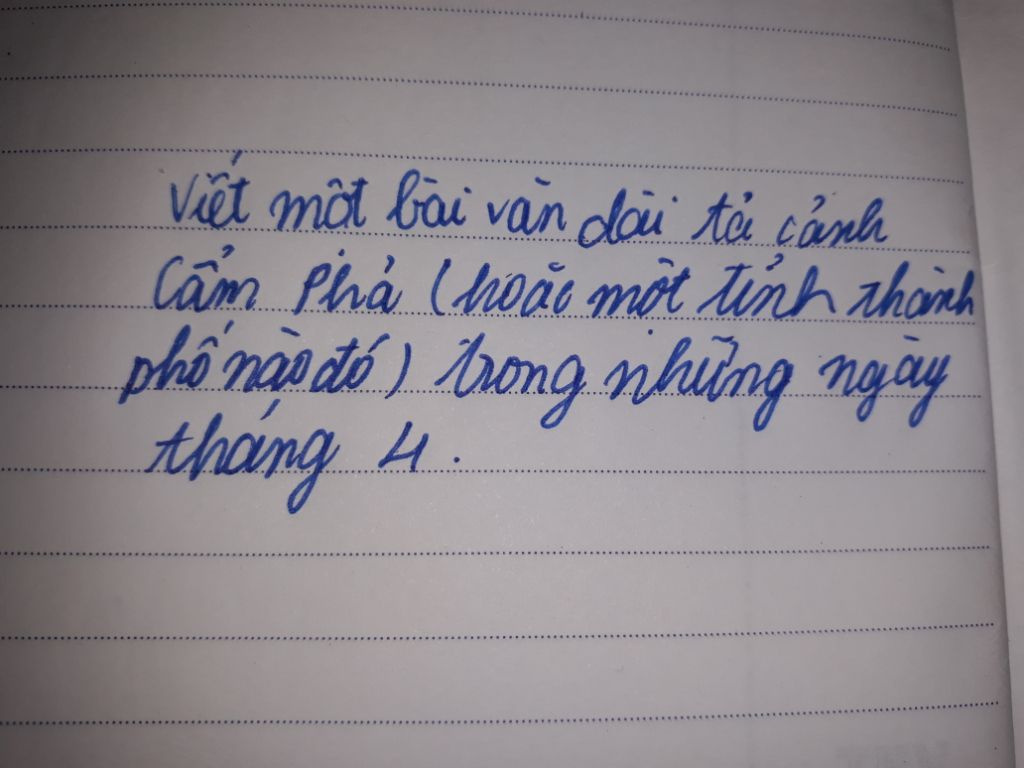 Viết một bài văn dài tả cảnh
Cẩm Phả (hoặc một tỉnh thành
phố nào đó) trong những ngày
tháng 4.